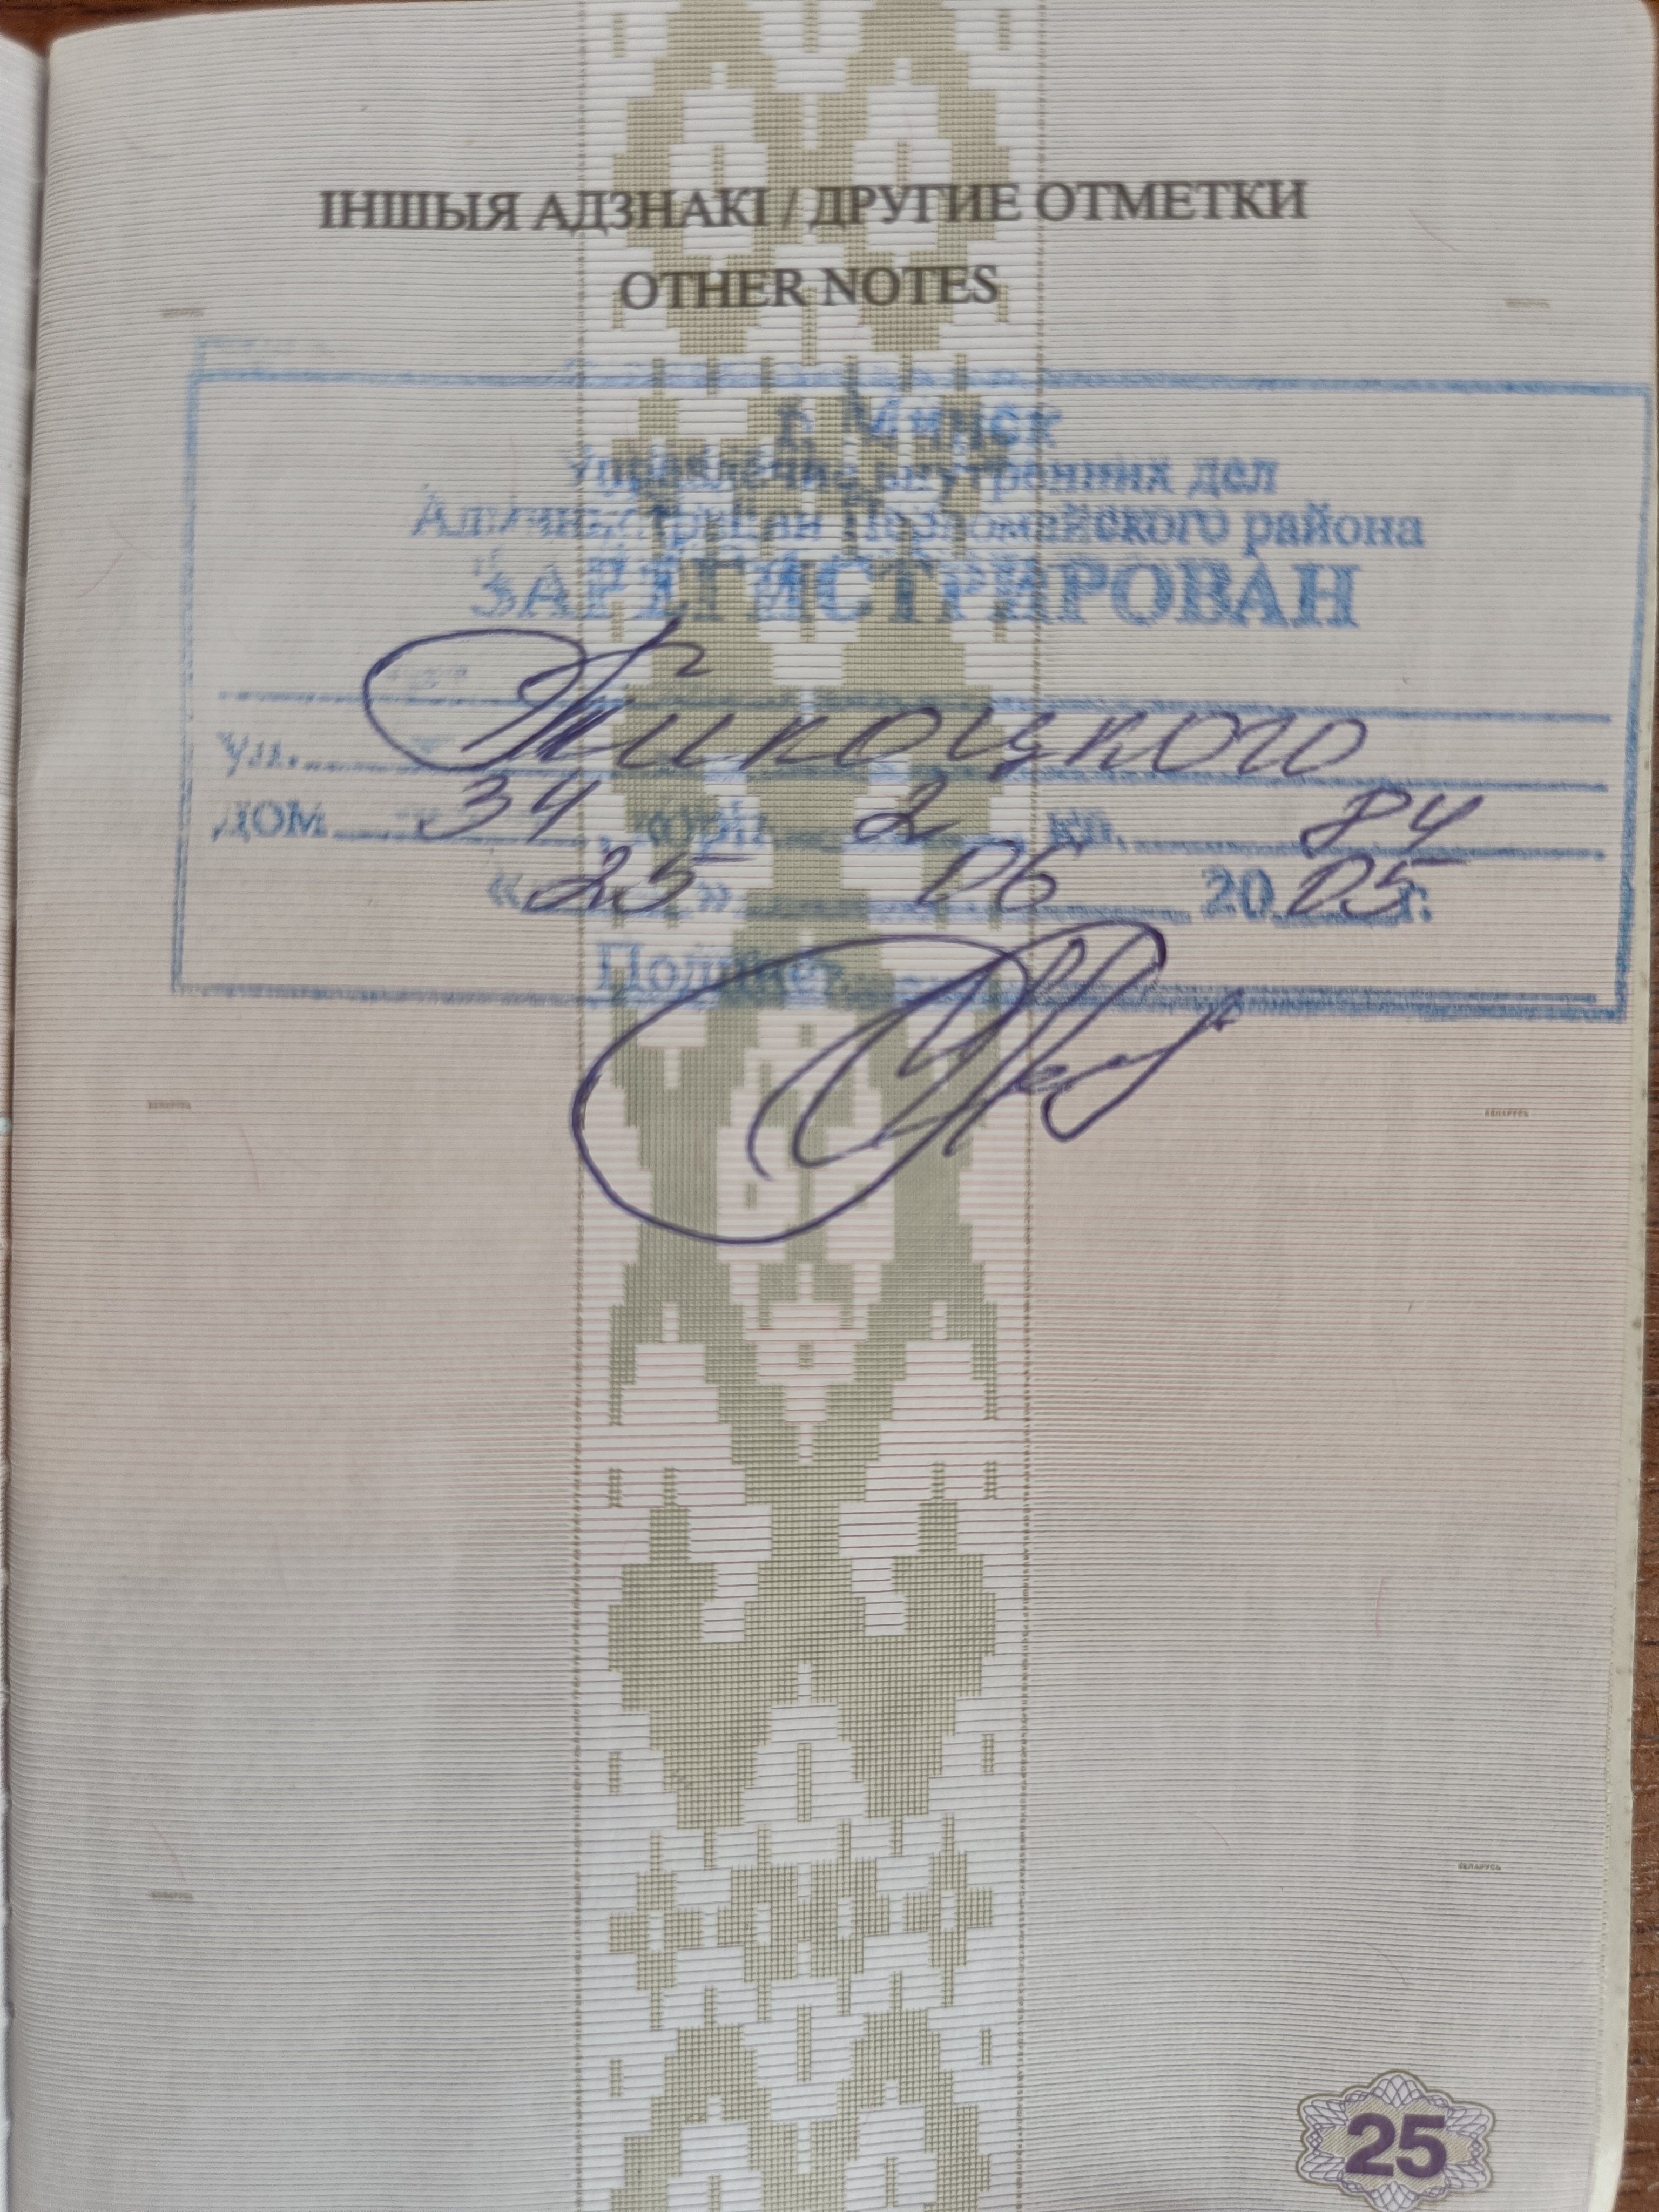 ІНШЫЯ АДЗНАКІ / ДРУГИЕ ОТМЕТКИ
OTHER NOTES
г. Минск
Управление внутренних дел
Администрации Первомайского района
ЗАРЕГИСТРИРОВАН
ул. Тикоцкого
дом 34 корп. 2 кв. 84
« 25 » 06 20 05 г.
Подпись
БЕЛАРУСЬ БЕЛАРУСЬ
БЕЛАРУСЬ БЕЛАРУСЬ
25